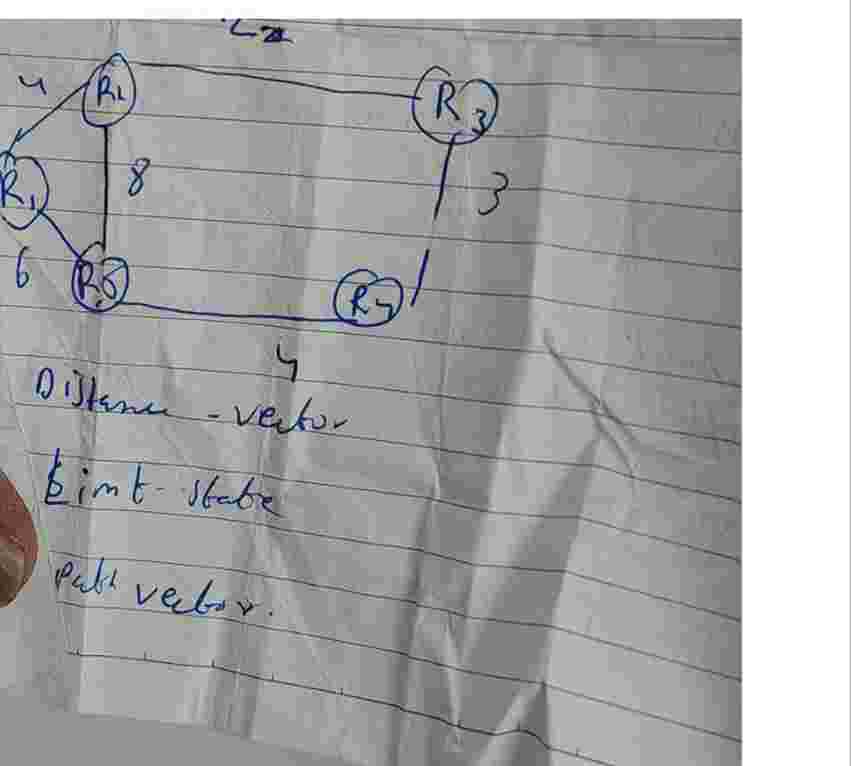 4
R2
R3
8
R1
3
6
R5
R4
4
Distance - vector
Link - state
Path vector.